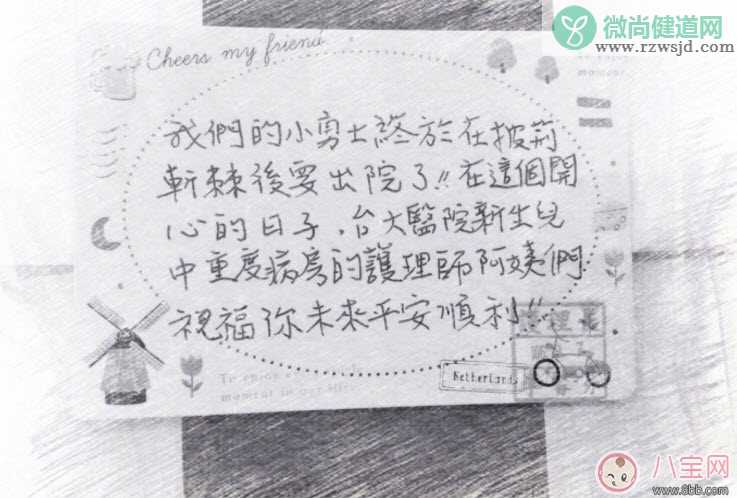 微尚健道网
www.rzwsjd.com
Cheers my friend
To enjoy
moment
我們的小勇士終於在披荊
斬棘後要出院了!!在這個開
心的日子,台大醫院新生兒
中重度病房的護理師阿姨們
祝福你未來平安順利!!
To enjoy
moment in our life
Netherlands
八宝网
www.8bb.com